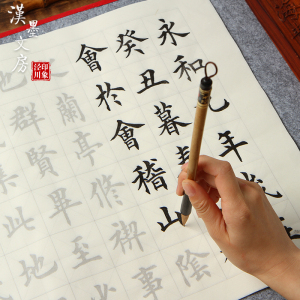 漢墨文房
印象
泾川
永和九年歲
癸丑暮春
會於會稽山陰
蘭亭修禊事
群賢畢至
此地